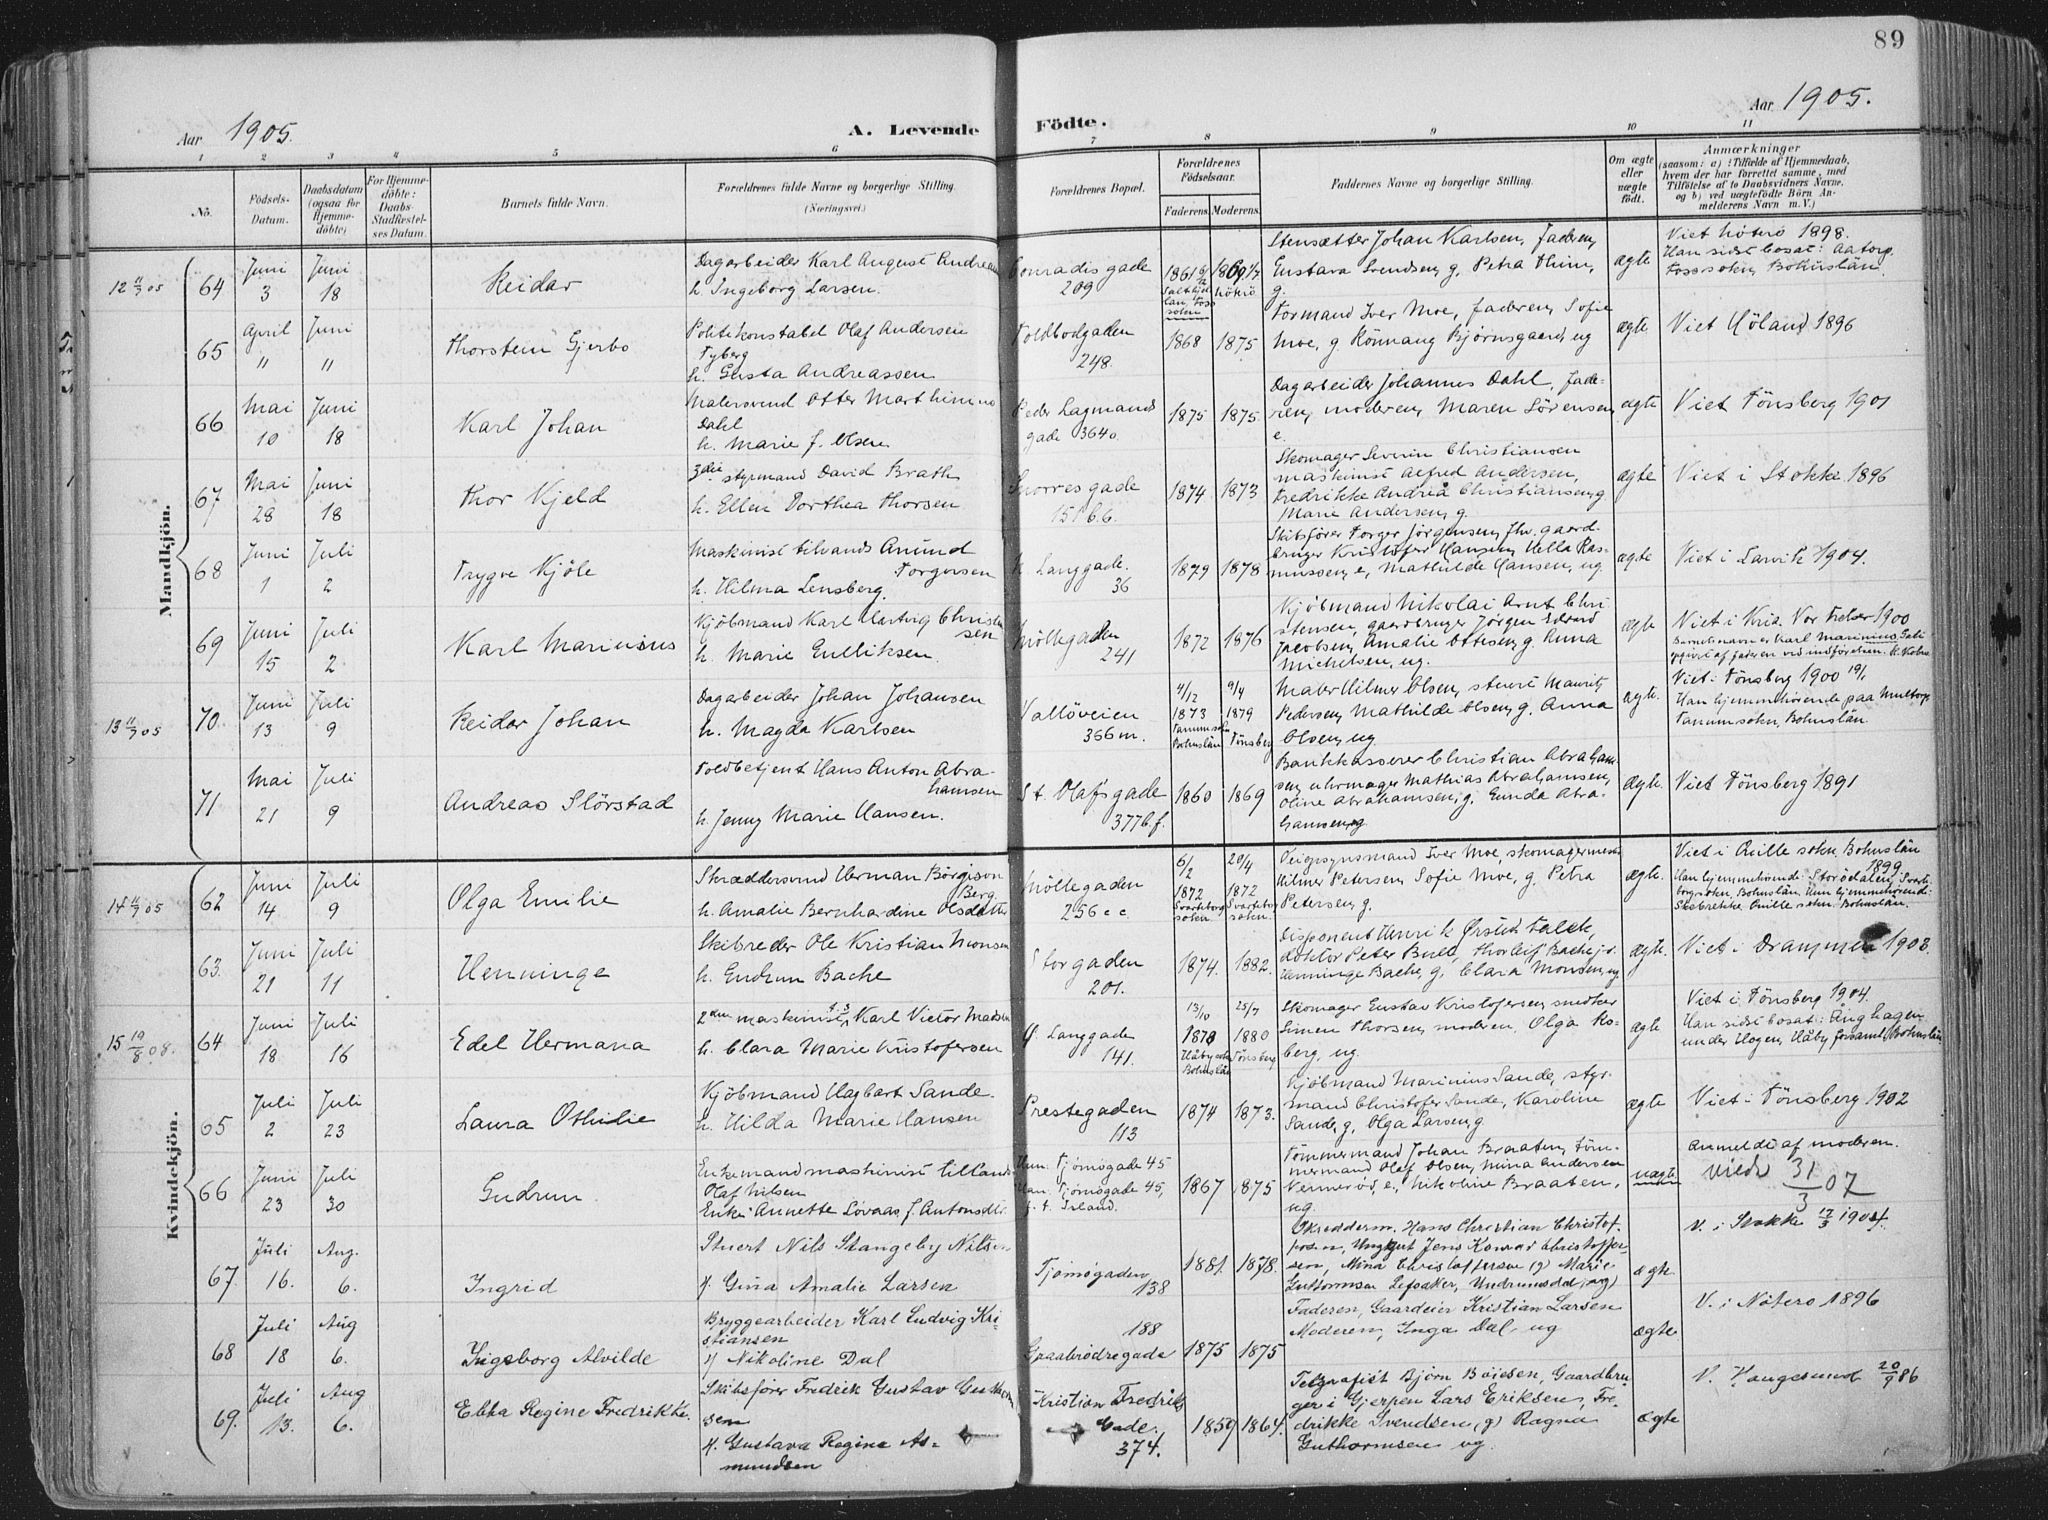 89
Aar 1905.
A. Levende Födte.
Aar 1905.
1 2 3 4 5 6 7 8 9 10 11
No.
Födsels-Datum.
Daabsdatum (ogsaa for Hjemme-döbte)
For Hjemme-döbte: Daabs-Stadfæstel-ses Datum.
Barnets fulde Navn.
Forældrenes fulde Navne og borgerlige Stilling.
(Næringsvei.)
Forældrenes Bopæl.
Forældrenes Födselsaar.
Faderens. Moderens.
Faddernes Navne og borgerlige Stilling.
Om ægte eller uægte födt.
Anmærkninger
(saasom: a) i Tilfælde af Hjemmedaab,
hvem der har forrettet samme, med
Tilföielse af to Daabsvidners Navne,
og b) ved uægtefödte Börn An-
melderens Navn m. V.)
Mandkjön.
12 11/9 05
64
Juni 3
Juni 18
Reidar
Dagarbeider Karl August Andreas
h. Ingeborg Larsen.
Conradis gade
209
1861
1869 1/7
Stensætter Johan Karlsen, Faderen,
Gustava Svendsen, g. Petra Thim,
g.
ægte
Viet Nöterö 1898.
Han sidst bosat: Aatorp
Foss sokn, Bohuslän.
65
April 11
Juni 11
Thorstein Gjerbo
Politikonstabel Olaf Andersen
Tyberg
h. Gusta Andreassen
Toldbodgaden
248.
1868
1875
Formand Iver Moe, faderen, Sofie
Moe, g. Rönnaug Bjørnsgaard, ug
ægte
Viet Höland 1896
66
Mai 10
Juni 18
Karl Johan
Malersvend Otter Marthinius
Dahl
h. Marie f. Olsen
Peder Lagmands
gade 364o.
1875
1875
Dagarbeider Johannes Dahl, fade-
ren, moderen, Maren Sörensen,
e.
ægte
Viet Tönsberg 1901
67
Mai 28
Juni 18
Thor Kjeld
3die styrmand David Brath
h. Ellen Dorthea Thorsen
Snorres gade
151 b.6.
1874
1873
Skomager Severin Christiansen
maskinist Alfred Andersen,
Fredrikke Andrea Christiansen, g.
Marie Andersen, g.
ægte
Viet i Stokke 1896
68
Juni 1
Juli 2
Trygve Kjöle
Maskinist tilvands Anund
Torgersen
h. Hilma Lensberg.
N. Langgade.
36
1879
1878
Skibsförer Torger Jörgensen, fhv. gaard-
bruger Kristofer Hansen, Hella Ras-
mussen, e, Mathilde Hansen, ug.
ægte
Viet i Larvik 1904.
69
Juni 15
Juli 2
Karl Marinius
Kjöbmand Karl Hartvig Christen
sen
h. Marie Gulliksen.
Möllegaden
241
1872
1876
Kjöbmand Nikolai Arnt Chri-
stensen, gaardbruger Jörgen Edvard
Jacobsen, Amalie Ottesen, g. Anna
Michelsen, ug.
ægte
Viet i Kria. Vor Frelser 1900
Barnets navn er Karl Marinius
opgivet af faderen ved indförelsen.
13 11/9 05
70.
Juni 13
Juli 9
Reidar Johan
Dagarbeider Johan Johansen
h. Magda Karlsen
Vallöveien
366 m.
4/12 1873
Tanum sokn Bohuslän
9/4 1879
Tönsberg
Maler Hilmer Olsen, stuert Mauritz
Pedersen, Mathilde Olsen, g. Anna
Olsen, ug.
ægte.
Viet i Tönsberg 1900
Han hjemmehörende paa
Tanum sokn, Bohuslän
71.
Mai 21
Juli 9
Andreas Slörstad
Toldbetjent Hans Anton Abra-
hamsen
h. Jenny Marie Hansen.
St. Olafs gade
377 b.f.
1860
1869
Bankkasserer Christian Abraham-
sen, uhrmager Mathias Abrahamsen,
Oline Abrahamsen, g. Gunda Abra-
hamsen, g
ægte.
Viet Tönsberg 1891
Kvindekjön.
14 11/9 05
62
Juni 14
Juli 9
Olga Emilie
Skræddersvend Herman Börgison
Berg
h. Amalie Bernhardine Olsdatter
Möllegaden
256 c c
6/2 1872
Svarteborg sokn.
20/4 1872
Svarteborg sokn.
Veiopsynsmand Iver Moe, skomagermester
Hilmer Petersen, Sofie Moe, g. Petra
Petersen, g.
ægte.
Viet i Quille sokn. Bohuslän
1899.
Han hjemmehörende: Storödalen, Svarte-
borg sokn, Bohuslän. Hun hjemmehörende:
Quille sokn. Bohuslän.
63.
Juni 21
Juli 11
Henninge
Skibreder Ole Kristian Monsen
h. Gudrun Bache
Storgaden
201.
1874.
1882.
Disponent Henrik Örsted Falck,
doktor Peter Bull, Thorleif Bache jr.
Henninge Bache, g, Clara Monsen, ug
ægte.
Viet i Drammen 1903.
15 19/8 08.
64
Juni 18
Juli 16
Edel Hermana
2den maskinist Karl Victor Madsen
h. Clara Marie Kristofersen
Ö. Langgade
141.
13/10
Håby sokn Bohuslän
25/7 1880
Tönsberg
Skomager Gustav Kristofersen, smedker
Simen Thorsen, moderen, Olga Ro-
berg, ug.
ægte
Viet i Tönsberg 1904.
Han sidst bosat: Ånghagen
under Hogen, Håby forsaml. Bohuslän
65
Juli 2
Juli 23
Laura Othilie
Kjöbmand Hagbart Sande.
h. Hilda Marie Hansen
Prestegaden
113
1874
1873.
Kjöbmand Marinius Sande, styr-
mand Christofer Sande, Karoline
Sande, g, Olga Larsen, g
ægte
Viet i Tönsberg 1902
66
Juni 23
Juli 30
Gudrun.
Enkemand maskinist tillands
Olaf Nilsen
Enke Annette Lövaas f. Antonsdtr.
Hun. Tjömögade 45
Han. Tjömögade 45,
f. t. Irland.
1867
1875
Tömmermand Johan Braaten, töm-
mermand Olaf Olsen, Mina Andersen
Nermeröd, e, Nikoline Braaten,
ug.
uægte
Anmeldt af moderen.
Viede 31/3 07
67.
Juli 16.
Aug. 6.
Ingrid
Stuert Nils Stangeby Nilsen
h. Gina Amalie Larsen
Tjömögaden
138
1881.
1878.
Skrædderm. Hans Christian Christof-
fersen, Ungkat Jens Konrad Christoffer-
sen, Mina Christoffersen (g) Marie
Guttormsen Lefsaker, Undrumsdal (ug)
ægte.
V. i Stokke 17/3 1904.
68
Juli 18
Aug 6.
Ingeborg Alvilde
Bryggearbeider Karl Ludvig Kri-
stiansen
h/ Nikoline Dal
188
Graabrödregade
1875
1875
Faderen, Gaardeier Kristian Larsen
Moderen, Inga Dal ug
ægte.
V. i Nöterö 1896
69.
Juli 13.
Aug 6.
Ebba Regine Fredrikke.
Skibsförer Fredrik Gustav
sen
h. Gustava Regine As-
mundsen
Kristian Fredriks
Gade.
374.
1859
1864.
Telegrafist Björn Boiesen, Gaardbru-
ger i Gjerpen Lars Eriksen, Fre-
drikke Svendsen, (g) Ragna
Guthormsen ug.
ægte
V. Haugesund 20/9 86